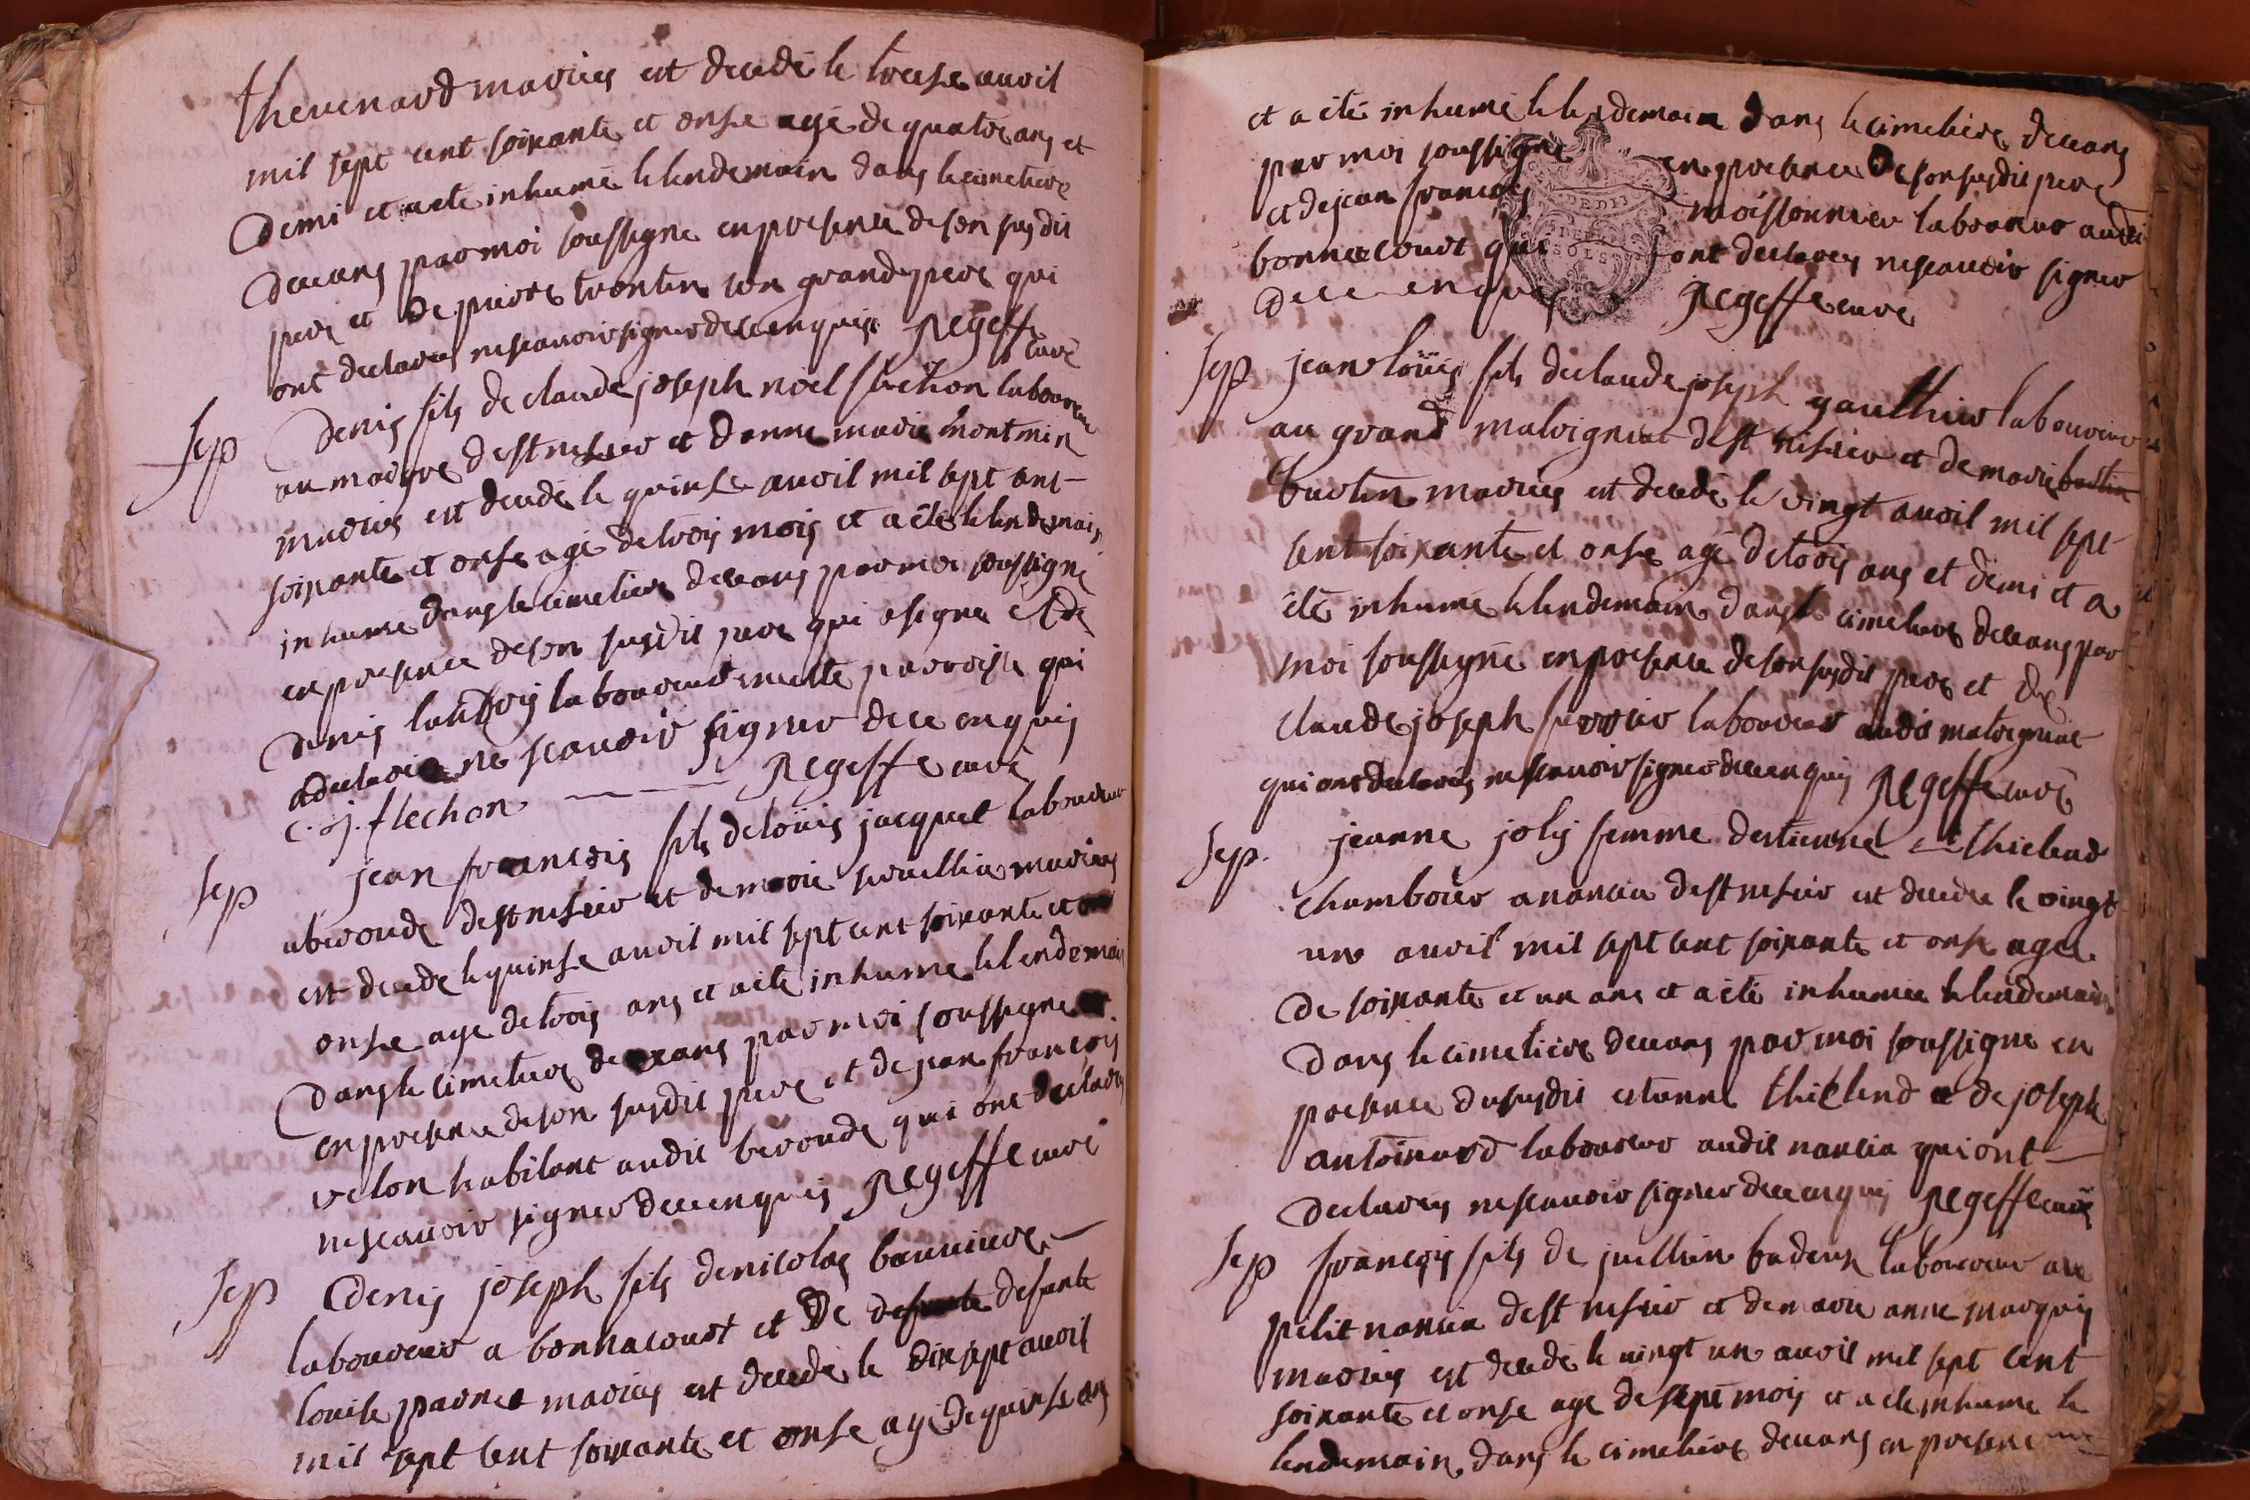 thevenard mariés est decedé le treise avril
mil sept cent soixante et onse agé de quatre ans et
demi et a ete inhumé le lendemain dans le cimetiere
deceans par moi soussigné en presence de son susdit
pere et de pierre trontin son grand pere qui
ont declarés ne scavoir signer de ce enquis Regeffe curé
Sep denis fils de claude joseph noel flechon laboureur
au magre de st nesier et danne marie montmin
mariés est decedé le quinse avril mil sept cent
soixante et onse agé de trois mois et a été le lendemain
inhumé dans le cimetiere deceans par moi soussigné
en presence de son susdit pere qui a signé et de
denis laudois laboureur en cette parroisse qui
a declaré ne scavoir signer de ce enquis
c. j. flechon Regeffe curé
Sep jean francois fils de loüis jacquet laboureur
a beronde de st nesier et de marie mariés
est decedé le quinse avril mil sept cent soixante et
onse agé de trois ans et a ete inhumé le lendemain
dans le cimetiere deceans par moi soussigné
en presence de son susdit pere et de jean francois
velon habitant audit beronde qui ont declarés
ne scavoir signer de ce enquis Regeffe curé
Sep denis joseph fils de nicolas
laboureur a bonnacourt et de defunte
louise mariés est decedé le dix sept avril
mil sept cent soixante et onse agé de quinse ans
et a eté inhumé le lendemain dans le cimetiere deceans
par moi soussigné en presence de son susdit pere
et de jean francois moissonnier laboureur audit
bonnecourt qui ont declarés ne scavoir signer
de ce enquis Regeffe curé
DEDIT
SOLS
Sep jean loüis fils de claude joseph gaulthier laboureur
au grand malvigniat de st nesier et de marie
burlin mariés est decedé le vingt avril mil sept
cent soixante et onse agé de trois ans et demi et a
été inhumé le lendemain dans le cimetiere deceans par
moi soussigné en presence de son susdit pere et de
claude joseph perrier laboureur audit malvigniat
qui ont declarés ne scavoir signer de ce enquis Regeffe curé
Sep. jeanne joly femme destienne thielend
chamboüer a nancia de st nesier est decedee le vingt
un avril mil sept cent soixante et onse agee
de soixante et un ans et a été inhumée le lendemain
dans le cimetiere deceans par moi soussigné en
presence du susdit estienne thielend et de joseph
antoinard laboureur audit nancia qui ont
declarés ne scavoir signer de ce enquis Regeffe curé
Sep francois fils de juillien badeux laboureur au
petit nancia de st nesier et de marie anne marquis
mariés est decedé le vingt un avril mil sept cent
soixante et onse agé de sept mois et a ete inhumé le
lendemain dans le cimetiere deceans en presence